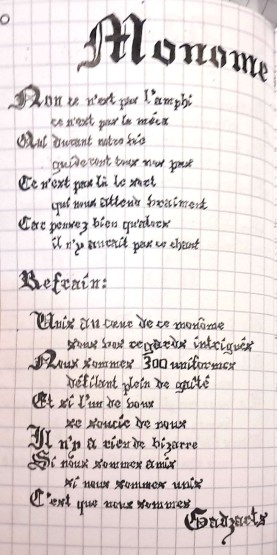 Monome
Non ce n'est pas l'amphi
ce n'est pas la méca
Qui durant notre vie
guideront tous nos pas
Ce n'est pas là le sort
qui nous attend vraiment
Car pensez bien qu'alors
il n'y aurait pas ce chant
Refrain:
Unis au cœur de ce monôme
sous vos regards intrigués
Nous sommes 300 uniformes
défilant plein de gaîté
Et si l'un de vous
se soucie de nous
Il n'y a rien de bizarre
Si nous sommes amis
si nous sommes unis
C'est que nous sommes
Gadzarts